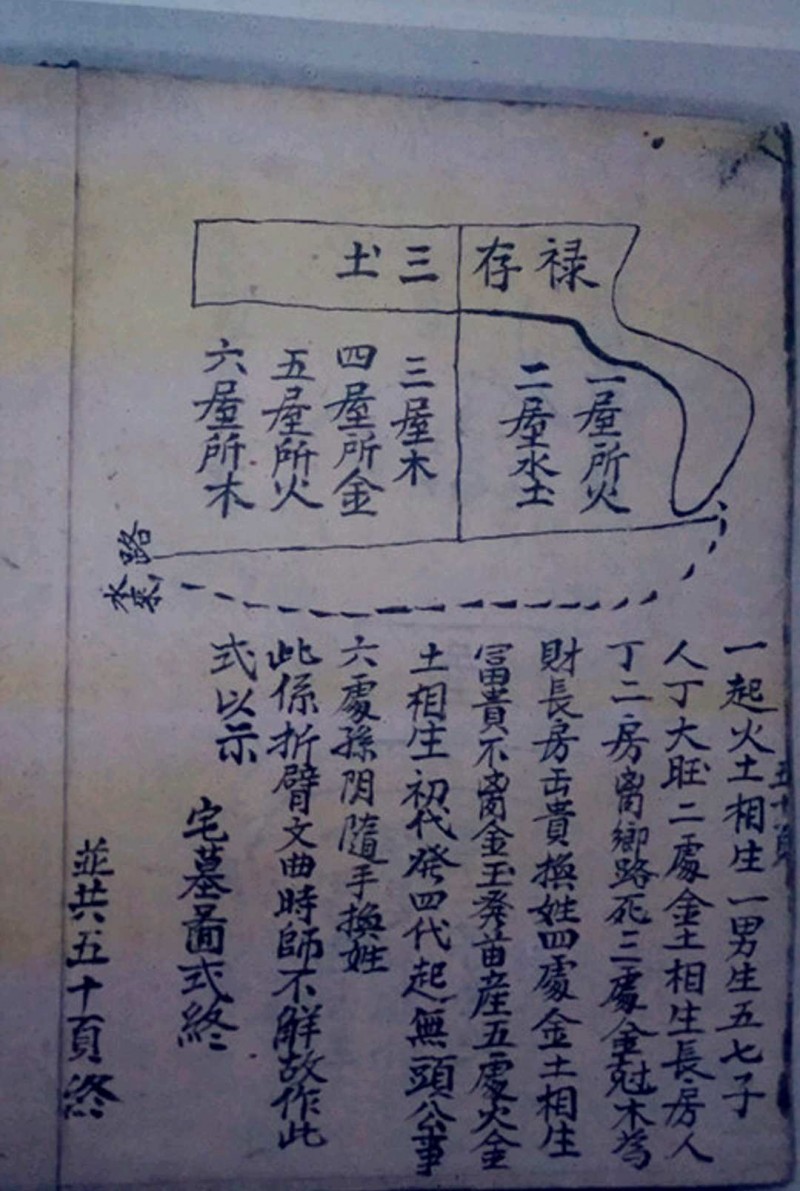 禄存
三土
一屋所火
二屋水土
三屋木
四屋所金
五屋所火
六屋所木
路
水來
一起火土相生一男生五七子
人丁大旺二處金土相生長房人
丁二房离鄉路死三處金尅木為
財長房面貴換姓四處金土相生
富貴不离金玉發苗産五處火金
土相生初代發四代起無頭公事
六處孫阴隨手換姓
此係折臂文曲時師不解故作此
式以示
宅墓啚式終
並共五十頁終
五十頁